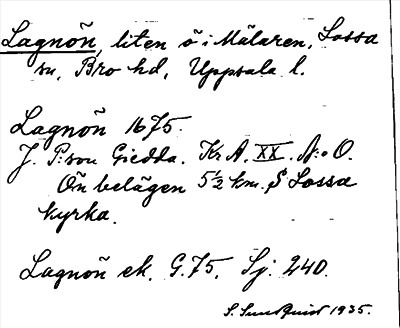 Lagnön, liten ö i Mälaren, Lossa
sn, Bro hd, Uppsala l.
Lagnön 1675.
J. P:son Giedda. Kr A. XX. N:o 0.
Ön belägen 5½ km. S Lossa
kyrka.
Lagnön ek. G. 75. Sj. 240.
S. Sundquist 1935.